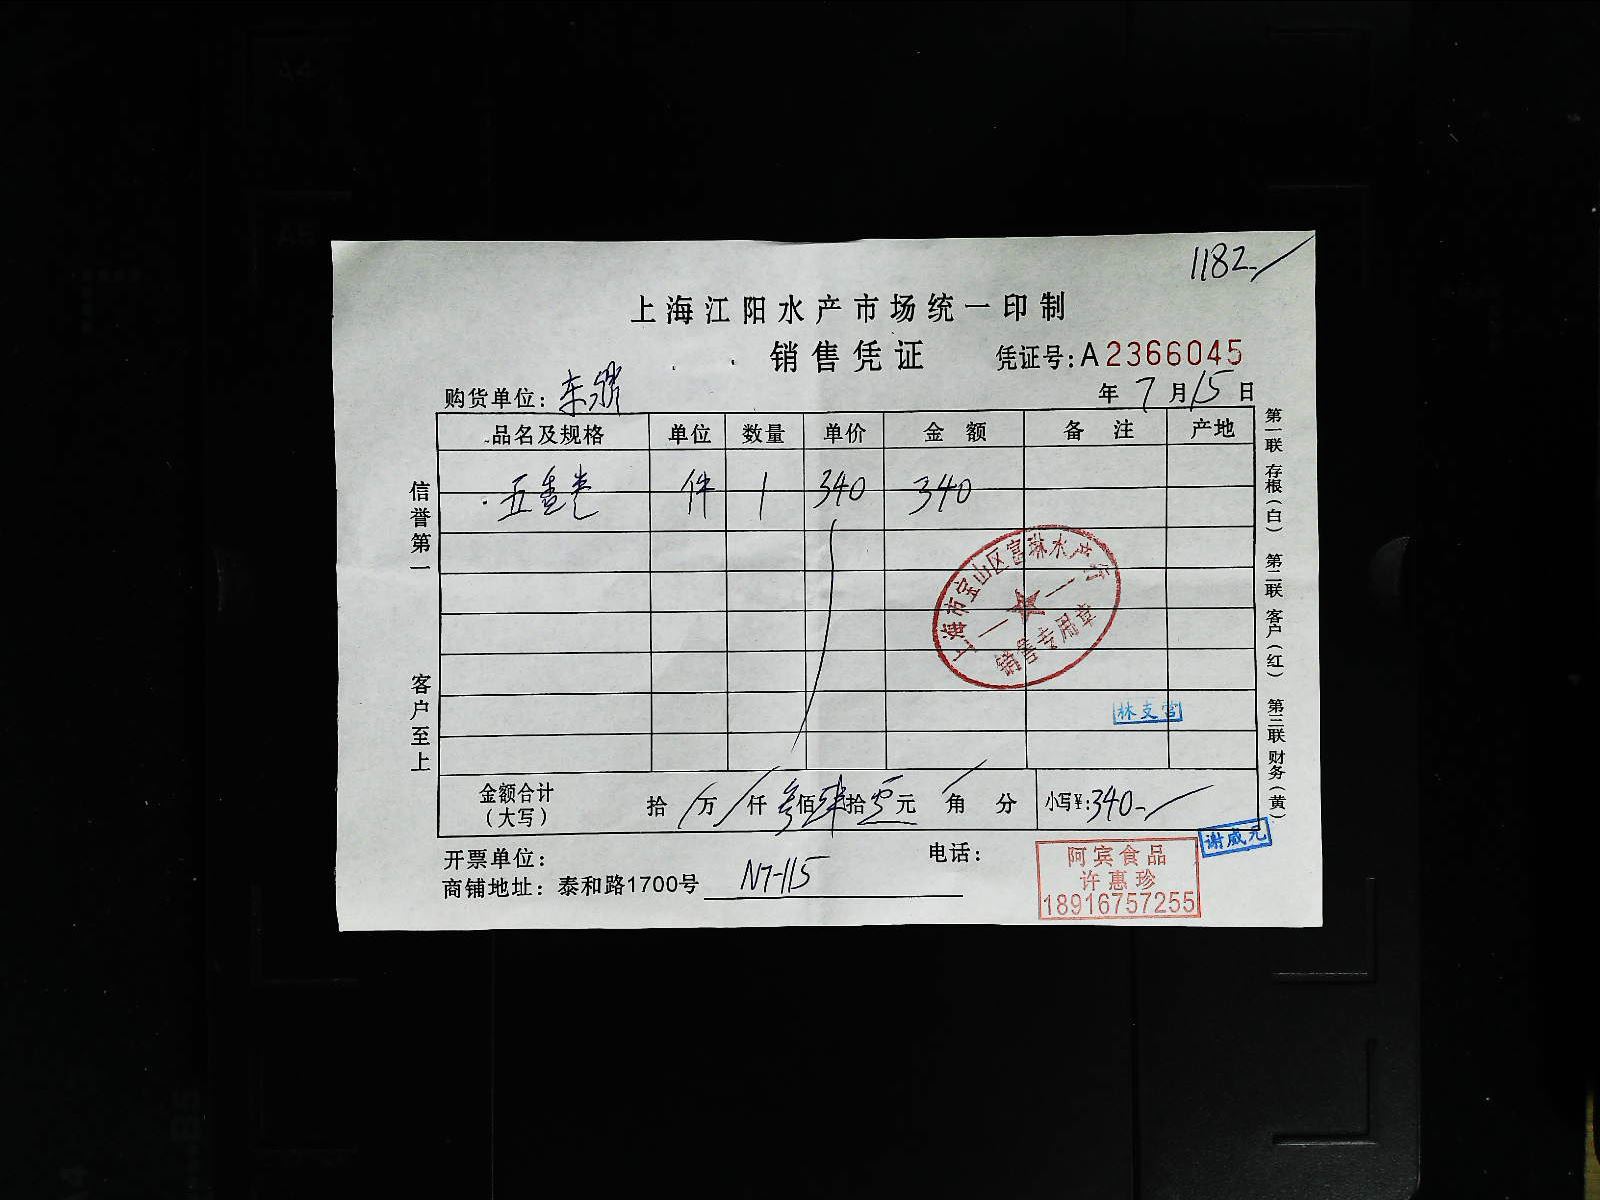 1182
上海江阳水产市场统一印制
销售凭证 凭证号:A2366045
购货单位: 东鼎 年 7 月 15 日
品名及规格 单位 数量 单价 金额 备注 产地
五香卷 件 1 340 340
上海市宝山区富琳水产行
销售专用章
林支营
金额合计（大写） 拾 万 仟 叁佰肆拾零元 角 分 小写¥:340-
谢威元
开票单位: 电话:
商铺地址: 泰和路1700号 N7-115
阿宾食品
许惠珍
18916757255
信誉第一 客户至上
第一联 存根(白) 第二联 客户(红) 第三联 财务(黄)
A4
A5
B5